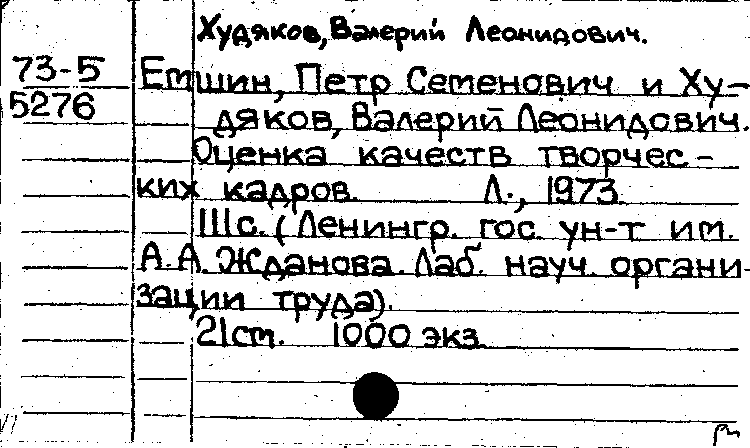 Худяков, Валерий Леонидович.
73-5
5276
Емшин, Петр Семенович и Ху-
дяков, Валерий Леонидович.
Оценка качеств творчес-
ких кадров. Л., 1973.
111с. (Ленингр. гос. ун-т им.
А.А. Жданова. Лаб. науч. органи-
зации труда).
21см. 1000 экз.